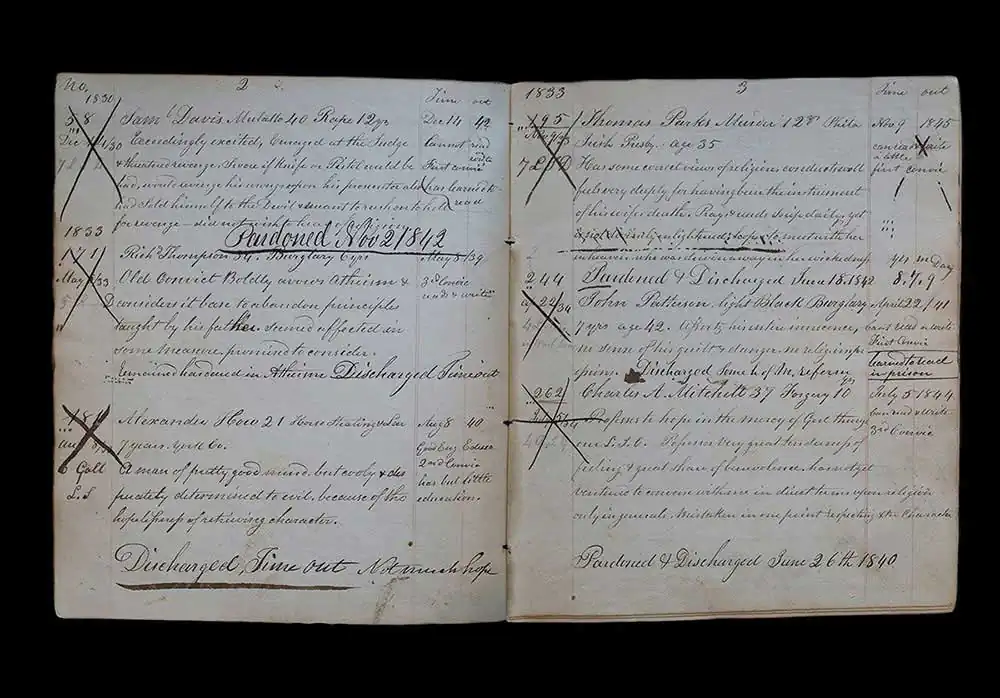 No. 2
1830 Time out
58 Sam.l Davis Mulatto 40 Rape 12 yrs Dec 14 42
Dec 14/30 Exceedingly excited, Enraged at the Judge Cannot read
& threatened revenge. Swore if Knife or Pistol could be First convic
had, would revenge his wrongs upon his prosecutor also has learned to
had sold himself to the Devil & meant to read
for revenge - did not wish to hear of Religion
1833 Pardoned Nov 21 1842
171 Rich.d Thompson 34 Burglary 6 yrs May 8 /39
May 8/33 Old Convict Boldly avows Atheism & 3rd Convic
considers it base to abandon principles read & write
taught by his father. seemed affected in
some measure. promised to consider.
remained hardened in Atheism Discharged Time out
Alexander How 21 Horse Stealing Aug 8 40
7 years York Co. Good Eng Educa
6 Gall A man of pretty good mind. but cooly & des 2nd Convic
L.S perately determined to evil, because of the has but little
hopelessness of retrieving character. education.
Discharged, Time out Not much hope
1833 3 Time out
195 Thomas Parks Murder 12 yrs Phila Nov 9 1845
Nov 9/33 Irish Presby. age 35 can read & write
a little
7 L D Has some correct views of religion & conducts well first convic
feels very deeply for having been the instrument
of his wife's death. Prays & reads Scrip. daily, yet
is not clearly enlightened; hopes to meet with her
in heaven who was driven away in her wickedness
244 Pardoned & Discharged June 18, 1842 8. 7. 9
Ap 22/34 John Patterson. light Black Burglary April 22 /41
7 yrs age 42. Asserts his entire innocence, cannot read or write
no sense of his guilt & danger. no religious First Convic
Discharged Some h of m. reform learned to read
in prison
262 Charles A. Mitchell 37 Forgery 10 yrs July 5 1844
July 5/34 Professes hope in the mercy of God through can read & write
our L.J.C. Possesses very great tenderness of 3rd Convic
feeling & great share of benevolence. has not yet
ventured to converse with me in direct terms upon religion
only in generals. Mistaken in one point respecting his Character
Pardoned & Discharged June 26th 1840